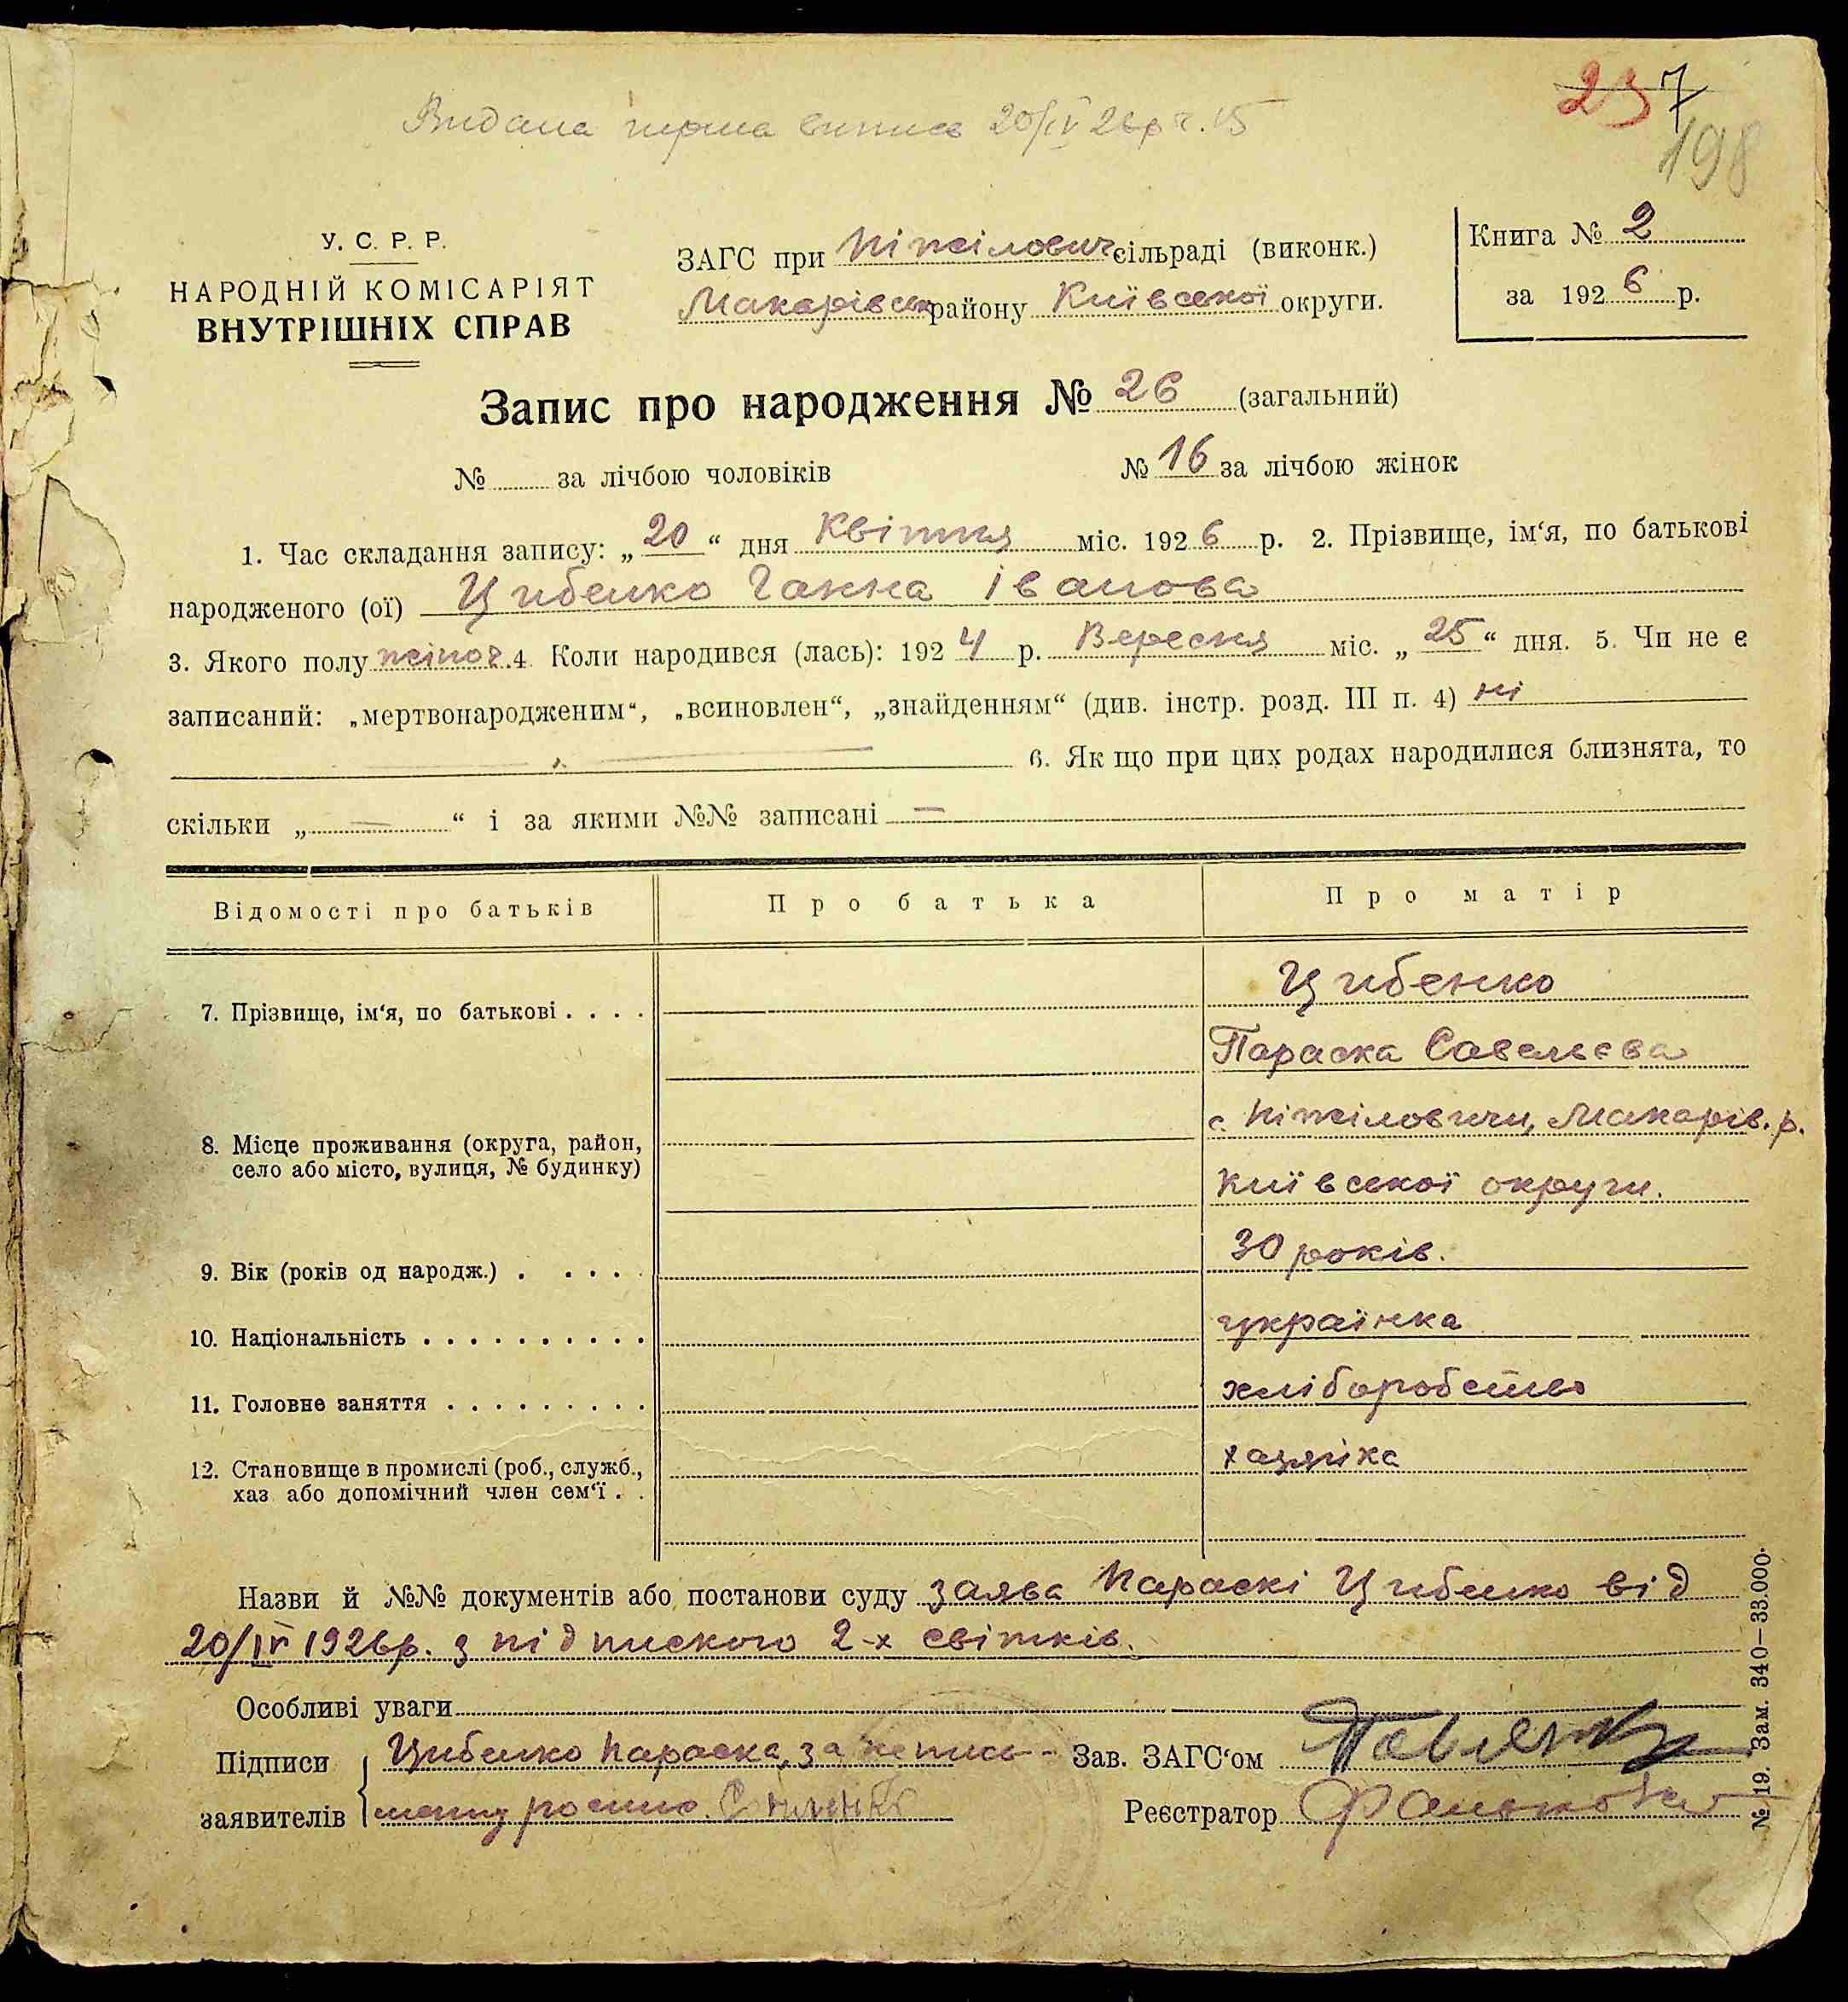 237
198
Видана перша випись 20/IV 26р ч. 15
У. С. Р. Р.
НАРОДНІЙ КОМІСАРІЯТ
ВНУТРІШНІХ СПРАВ
ЗАГС при Ніжілович сільраді (виконк.)
Макарівськ району Київської округи.
Книга № 2
за 1926 р.
Запис про народження № 26 (загальний)
№ за лічбою чоловіків № 16 за лічбою жінок
1. Час складання запису: „20“ дня Квітня міс. 1926 р. 2. Прізвище, ім‘я, по батькові
народженого (ої) Цибенко Ганна Іванова
3. Якого полу жіноч. 4 Коли народився (лась): 1924 р. Вересня міс. „25“ дня. 5. Чи не є
записаний: „мертвонародженим“, „всиновлен“, „знайденням“ (див. інстр. розд. III п. 4) ні
6. Як що при цих родах народилися близнята, то
скільки „—“ і за якими №№ записані —
Відомості про батьків Про батька Про матір
7. Прізвище, ім‘я, по батькові . . . . Цибенко
Параска Савельєва
8. Місце проживання (округа, район, с. Ніжіловичи, Макарів. р.
село або місто, вулиця, № будинку) Київської округи.
9. Вік (років од народж.) . . . . . 30 років.
10. Національність . . . . . . . . . . українка
11. Головне заняття . . . . . . . . . хліборобство
12. Становище в промислі (роб., служб., хазяїка
хаз або допомічний член сем‘ї . .
Назви й №№ документів або постанови суду заява Параскі Цибенко від
20/IV 1926р. з підпискою 2-х світків.
Особливі уваги
Підписи Цибенко Параска, за непись- Зав. ЗАГС‘ом
заявителів менну росписо. Реєстратор
№ 19. Зам. 340—33.000.